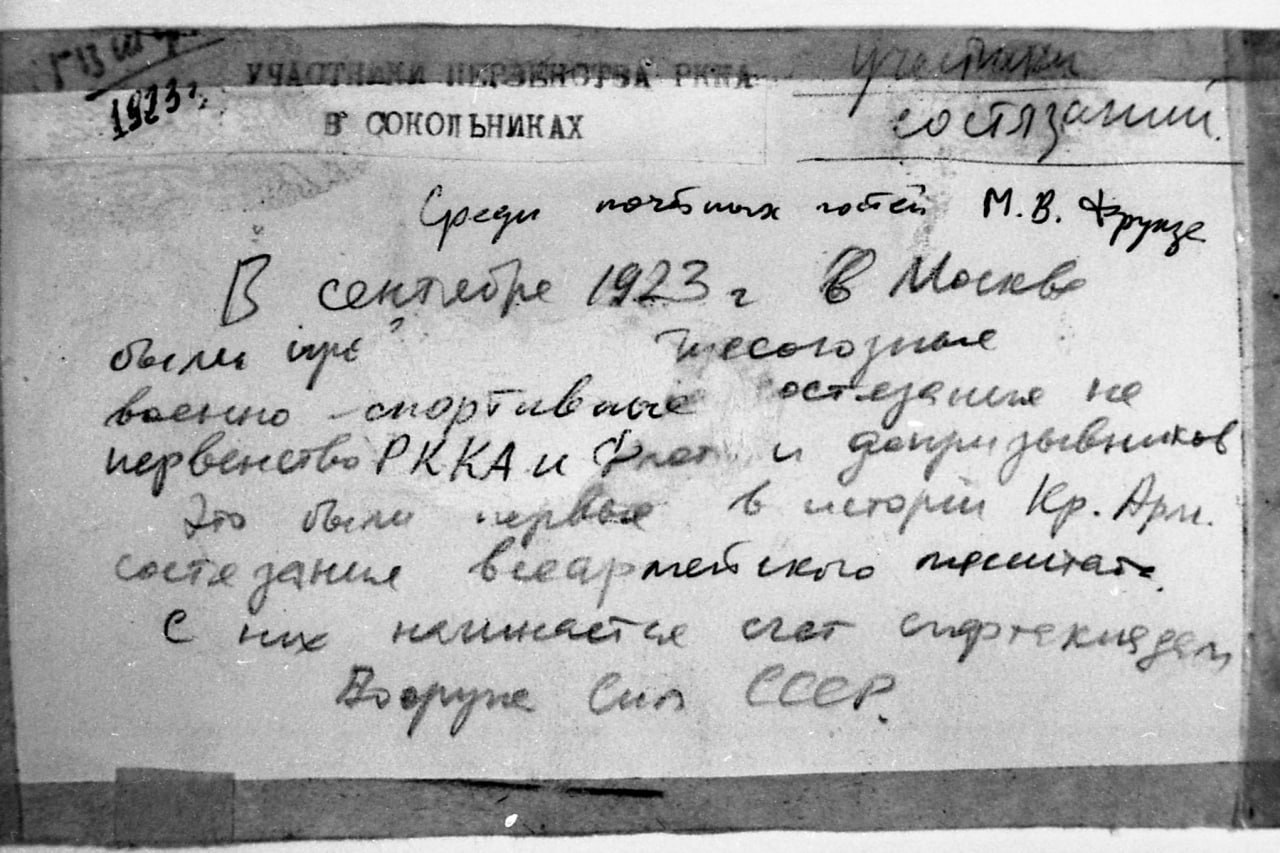 1923 г.
УЧАСТНИКИ ПЕРВЕНСТВА РККА
В СОКОЛЬНИКАХ
участники
состязаний.
Среди почётных гостей М. В. Фрунзе
В сентябре 1923 г в Москве
были
военно-спортивные состязания на
первенство РККА и Флота и допризывников
Это были первые в истории Кр. Арм.
состязания всеармейского масштаба.
С них начинается счет спартакиадам
Вооруж Сил СССР.